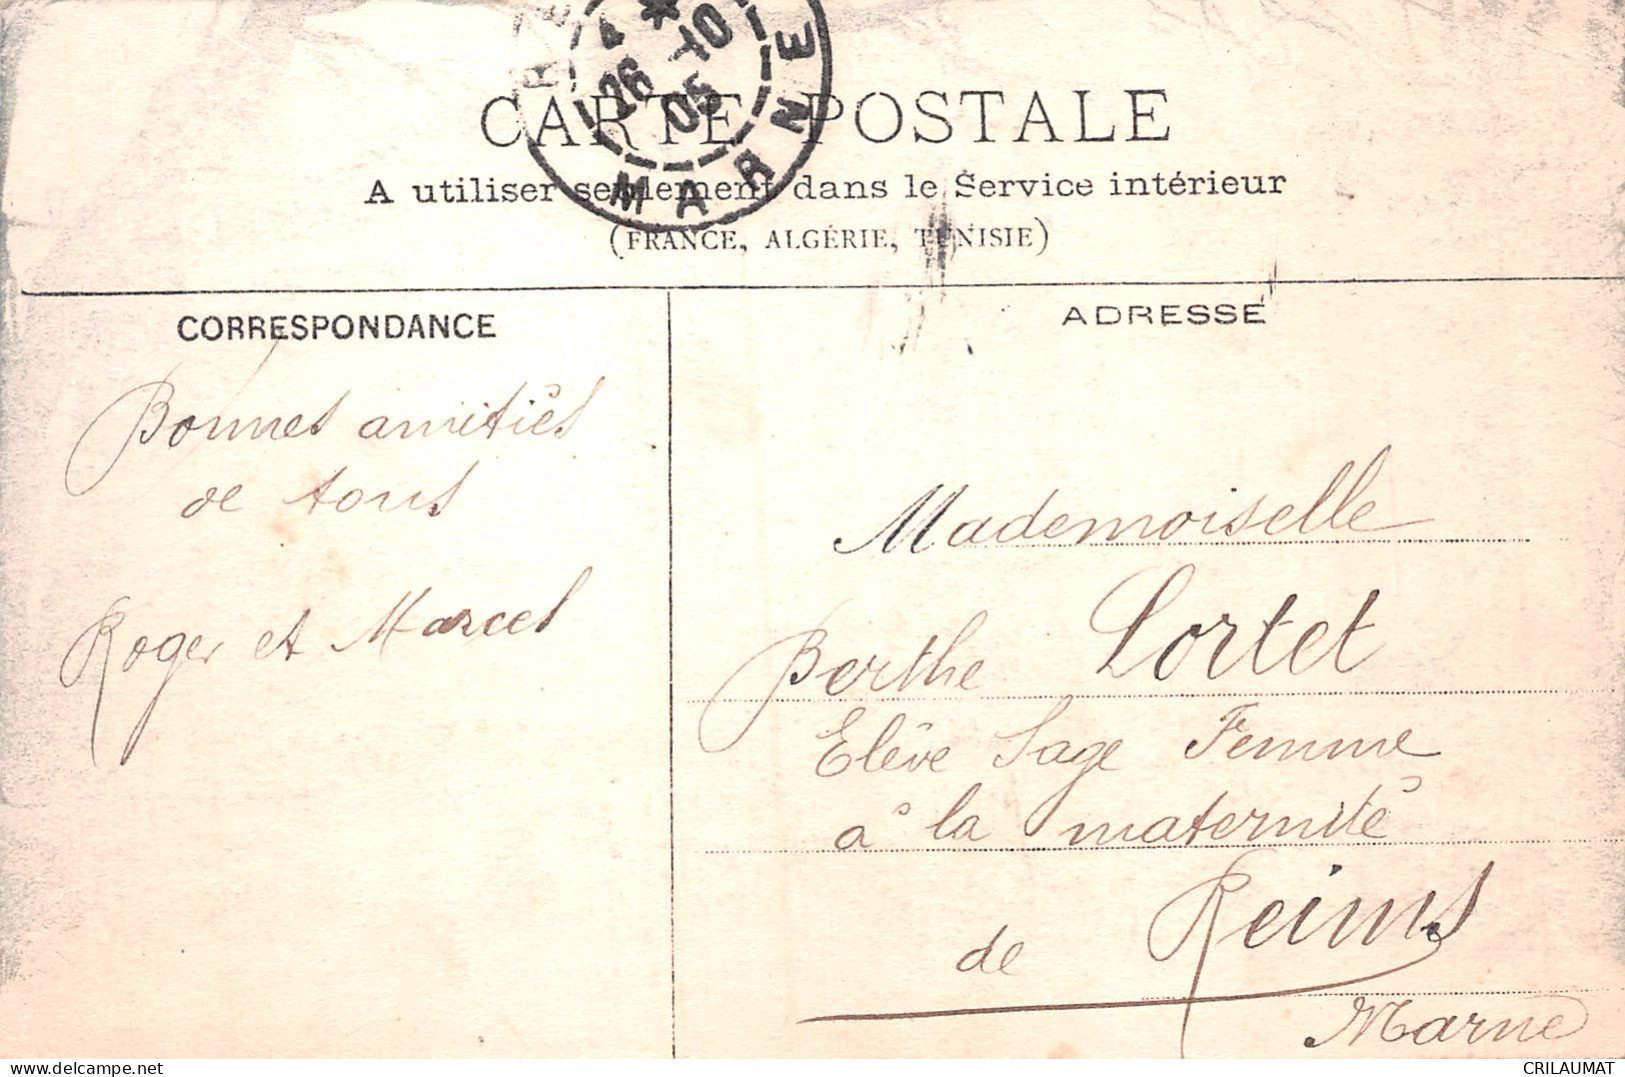 CARTE POSTALE
A utiliser seulement dans le Service intérieur
(FRANCE, ALGÉRIE, TUNISIE)
26 -10
05
MARNE
CORRESPONDANCE
Bonnes amitiés
de tous
Roger et Marcel
ADRESSE
Mademoiselle
Berthe Lortet
Elève Sage Femme
à la maternité
de Reims
Marne
CRILAUMAT